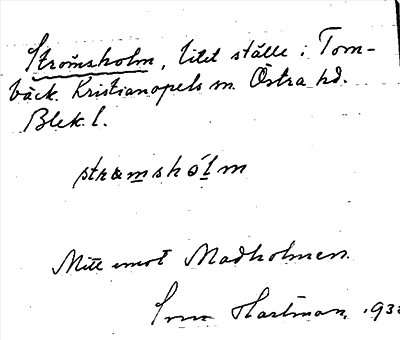 Strömsholm, litet ställe i Tom-
bäck. Kristianopels sn. Östra hd.
Blek. l.
strømshólm
Mitt emot Madholmen.
Hartman, 193